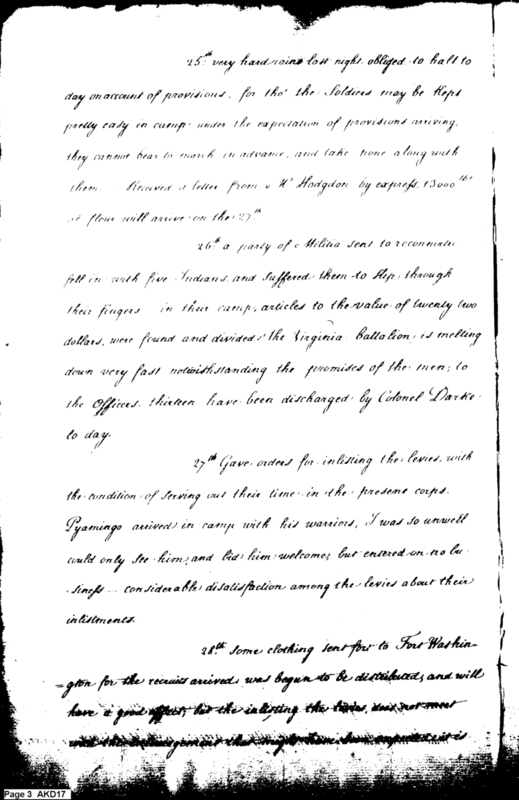 25.th very hard rains last night, obliged to halt to
day on account of provisions, for tho' the Soldiers may be kept
pretty easy in camp under the expectation of provisions arriving,
they cannot bear to march in advance, and take none along with
them. Received a letter from Mr Hodgdon by express, 13000 lbs
of flour will arrive on the 27.th
26.th a party of Militia sent to reconnoitre
fell in with five Indians, and suffered them to slip through
their fingers in their camp, articles to the value of twenty two
dollars, were found and divided, the Virginia battalion, is melting
down very fast notwithstanding the promises of the men, to
the Officers. thirteen have been discharged by Colonel Darke
to day.
27th Gave orders for inlisting the levies, with
the condition of serving out their time in the present corps.
Pyamingo arrived in camp with his warriors, I was so unwell
could only see him, and bid him welcome, but entered on no bu
siness considerable disatisfaction among the levies about their
inlistments.
28.th Some clothing sent for to Fort Washin-
=gton for the recruits arrived, was begun to be distributed, and will
have a good effect, but the inlisting the levies, does not meet
with the encouragement that might have been expected, it is
Page 3 AKD17